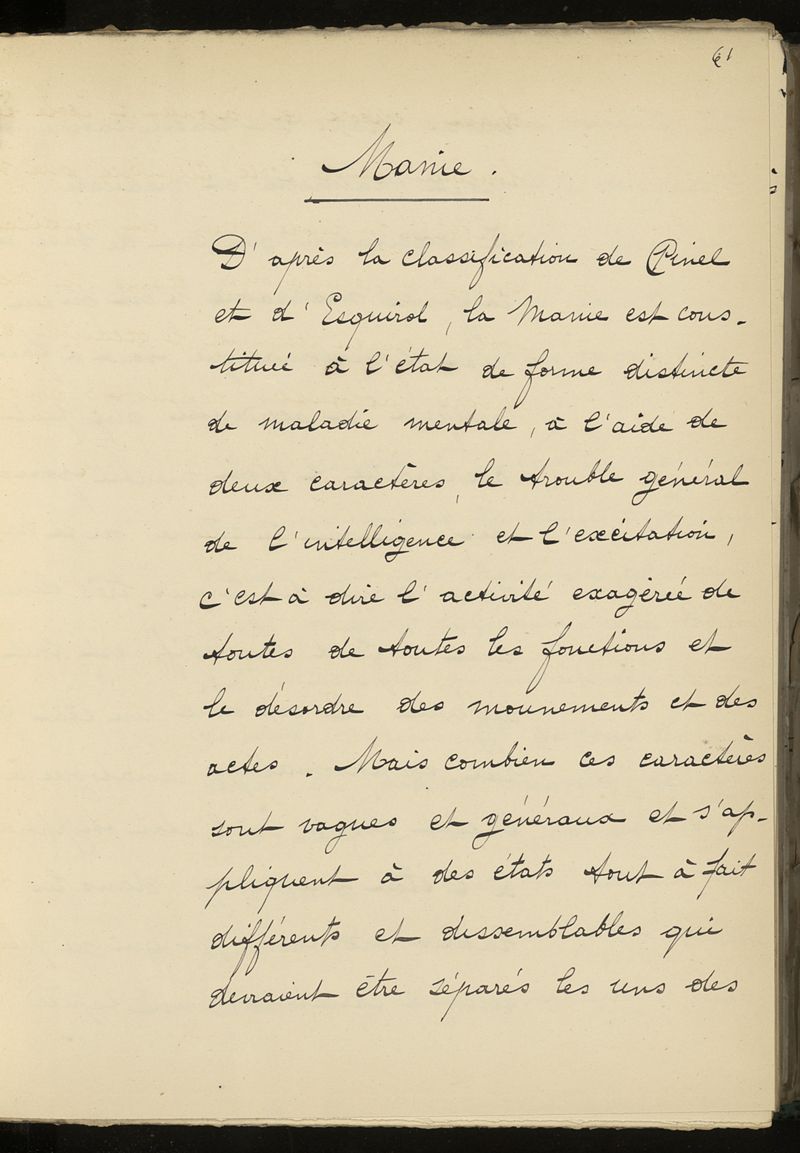 61
Manie.
D'après la classification de Pinel
et d'Esquirol, la Manie est cons-
titué à l'état de forme distincte
de maladie mentale, à l'aide de
deux caractères, le trouble général
de l'intelligence et l'excitation,
c'est à dire l'activité exagérée de
toutes de toutes les fonctions et
le désordre des mouvements et des
actes. Mais combien ces caractères
sont vagues et généraux et s'ap-
pliquent à des états tout à fait
différents et dissemblables qui
devraient être séparés les uns des